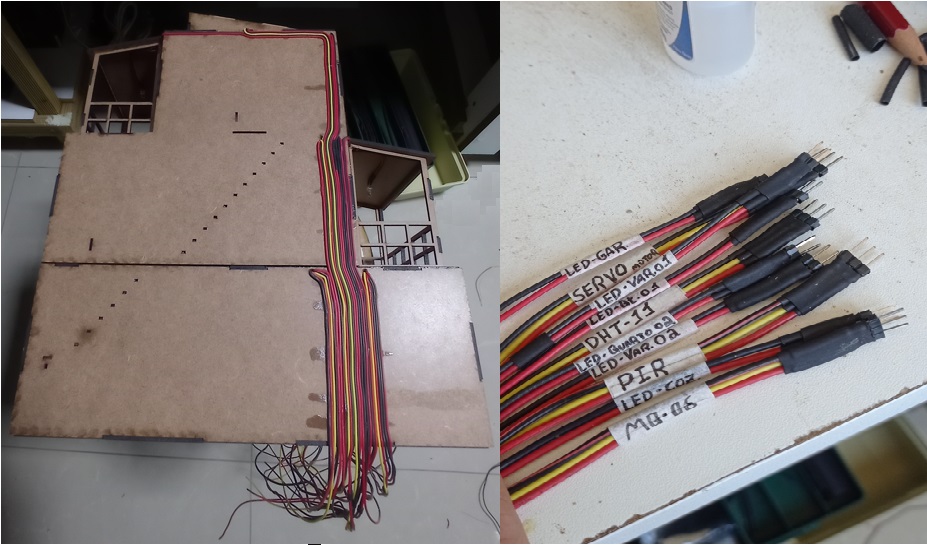 LED-GAR
SERVO MOTOR
LED-VAR.01
LED-QT.01
DHT-11
LED-QUARTO 02
LED-VAR.02
PIR
LED-COZ
MQ-06